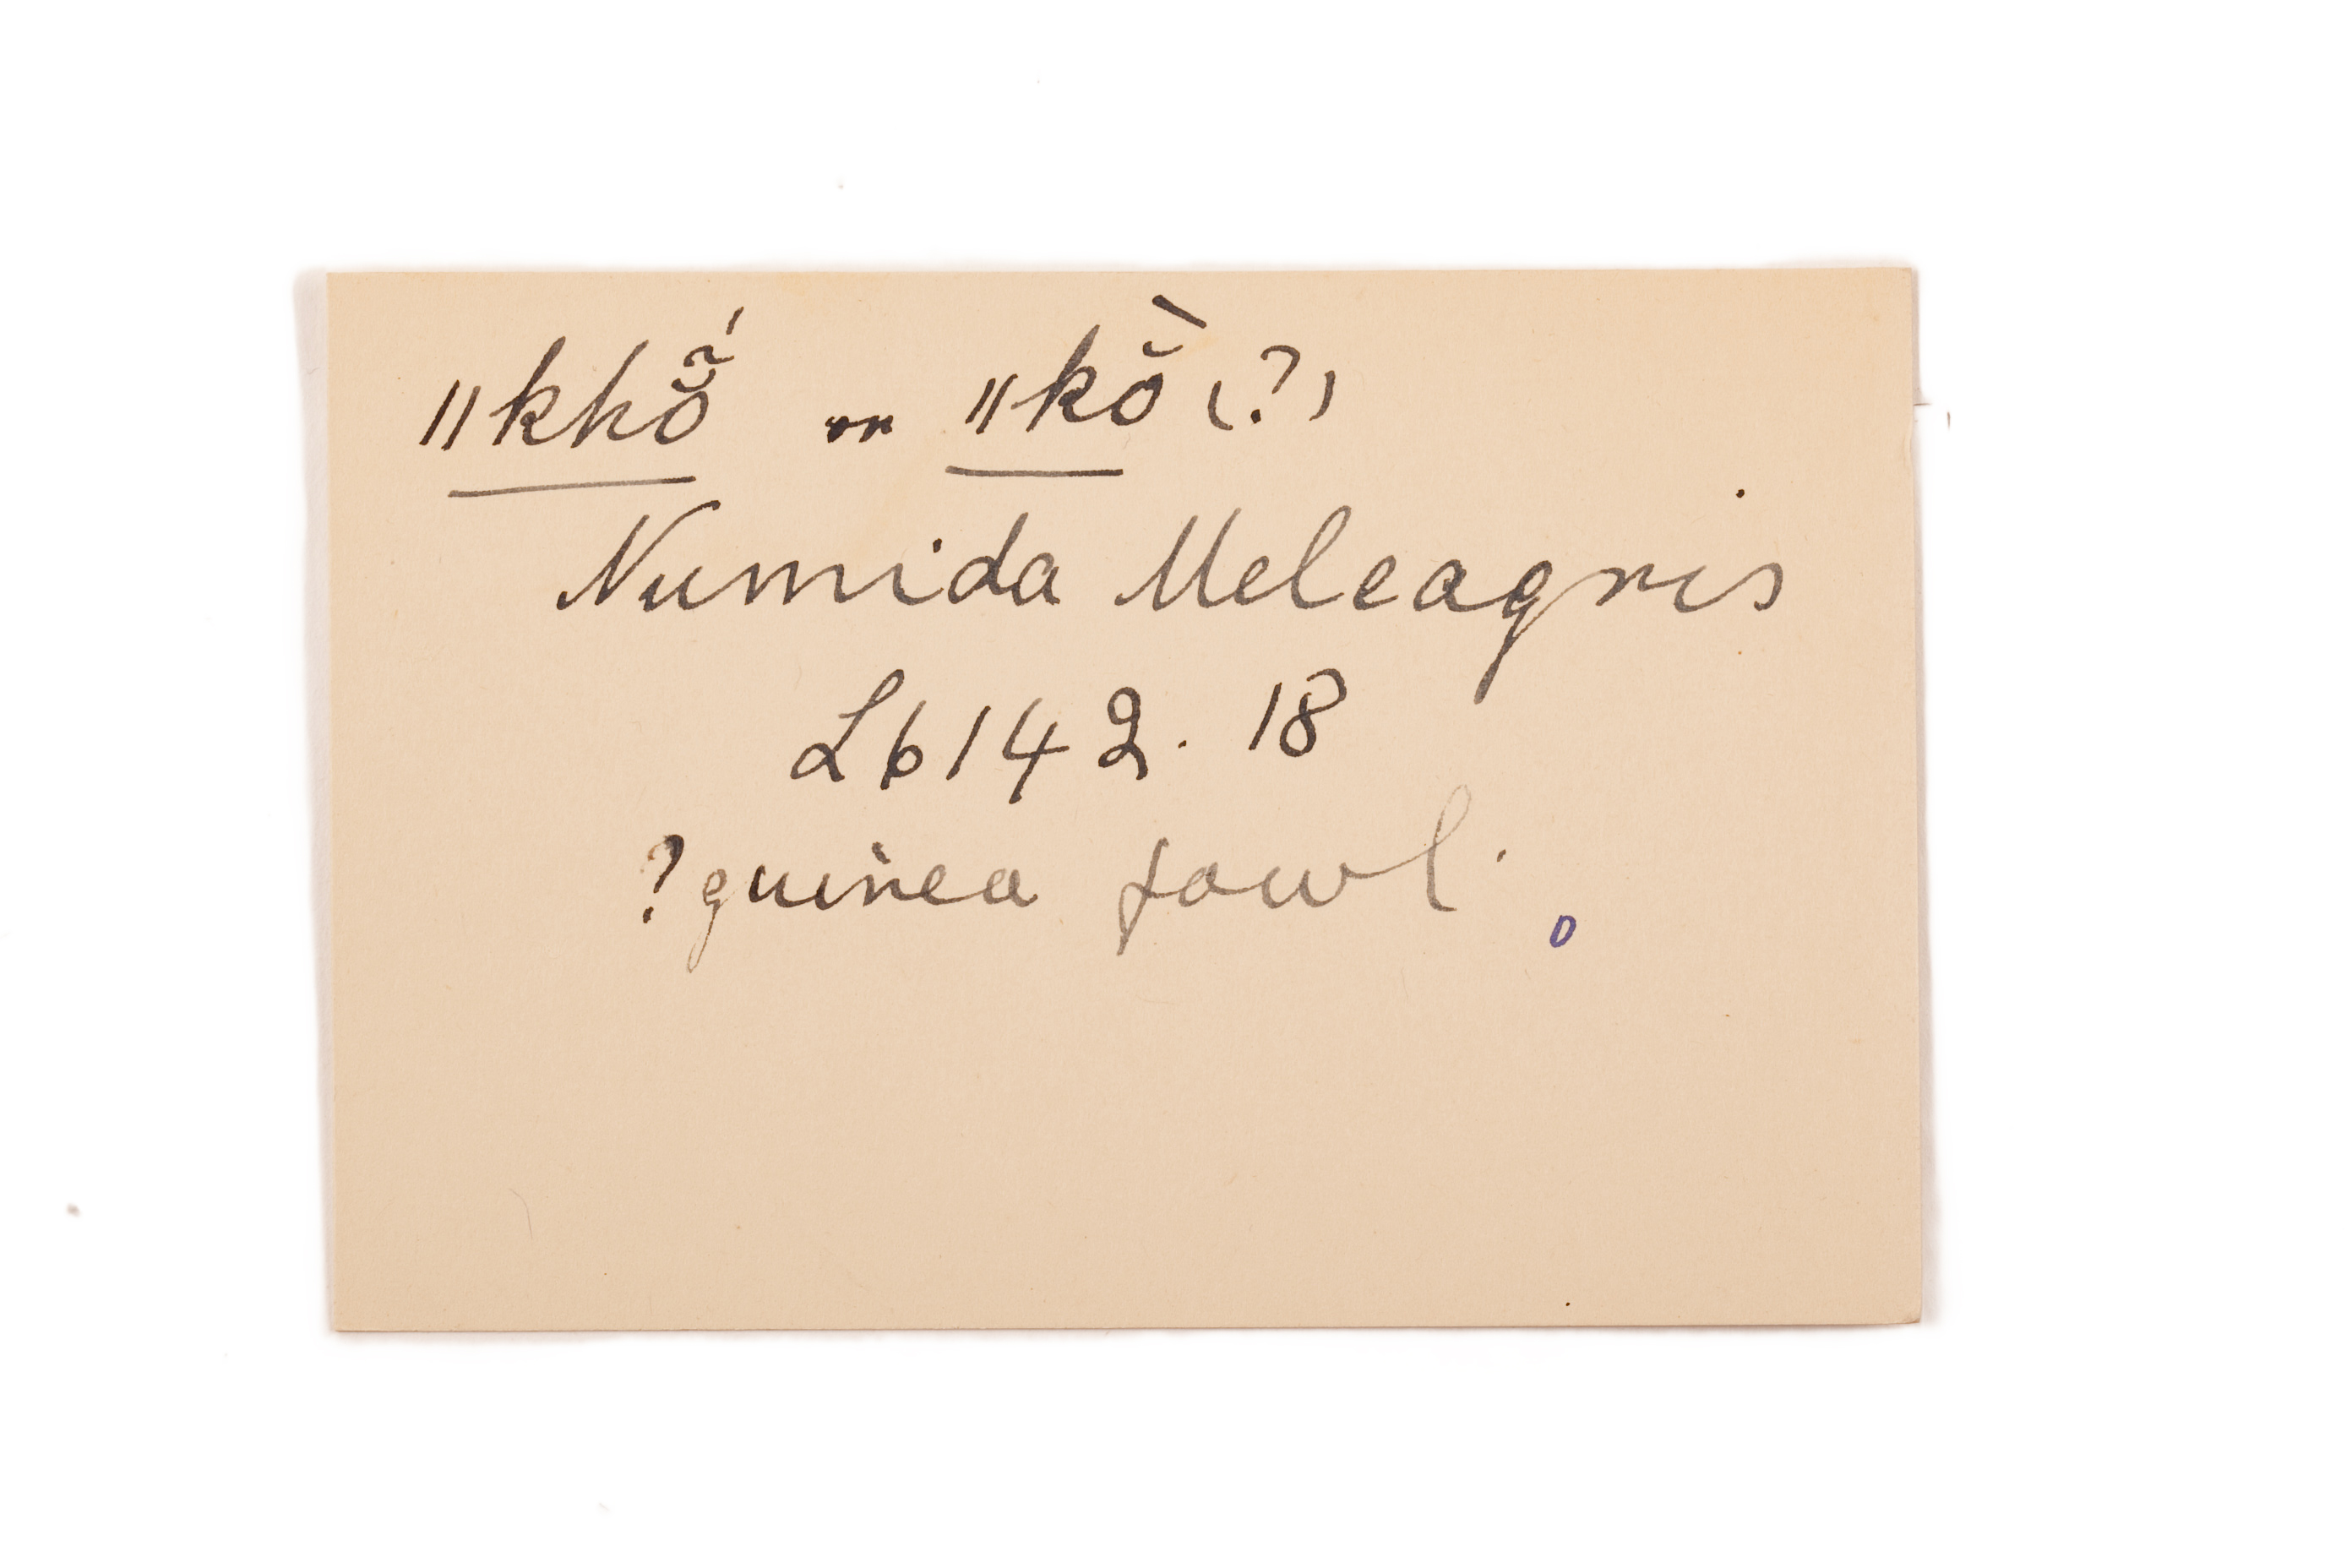 ǁkhŏ̃́ or ǁkŏ̀ (?)
Numida Meleagris
L6142. 18
? guinea fowl.